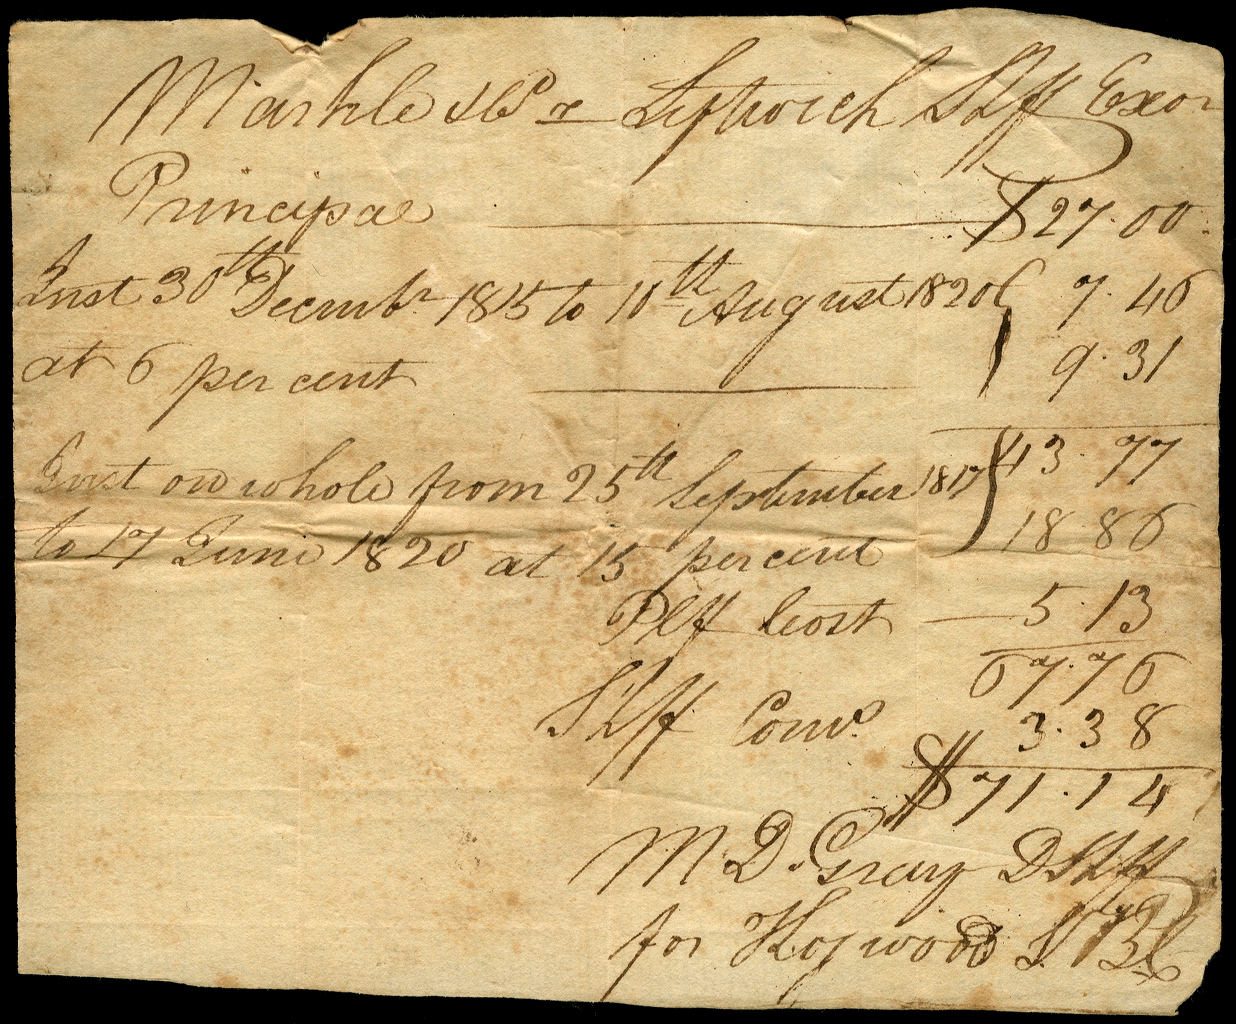 Markle & Co vs Leftwich Shff Exor
Principal $27.00
Inst 30th Decembr 1815 to 10th August 1820 7.46
at 6 per cent 9.31
43.77
Inst on whole from 25th September 1817
18.86
to 17 June 1820 at 15 per cent
Plff Cost 5.13
67.76
Shff Coms. 3.38
$71.14
M. D. Gray D Shff
for Hogwood S.